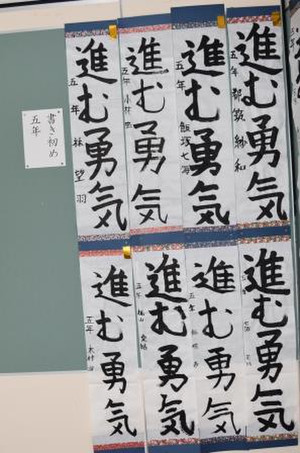 進む勇気
五年
進む勇気
五年 飯塚七海
進む勇気
五年
進む勇気
五年 林 望羽
進む勇気
進む勇気
五年
進む勇気
五年
進む勇気
五年 木村
書き初め
五年